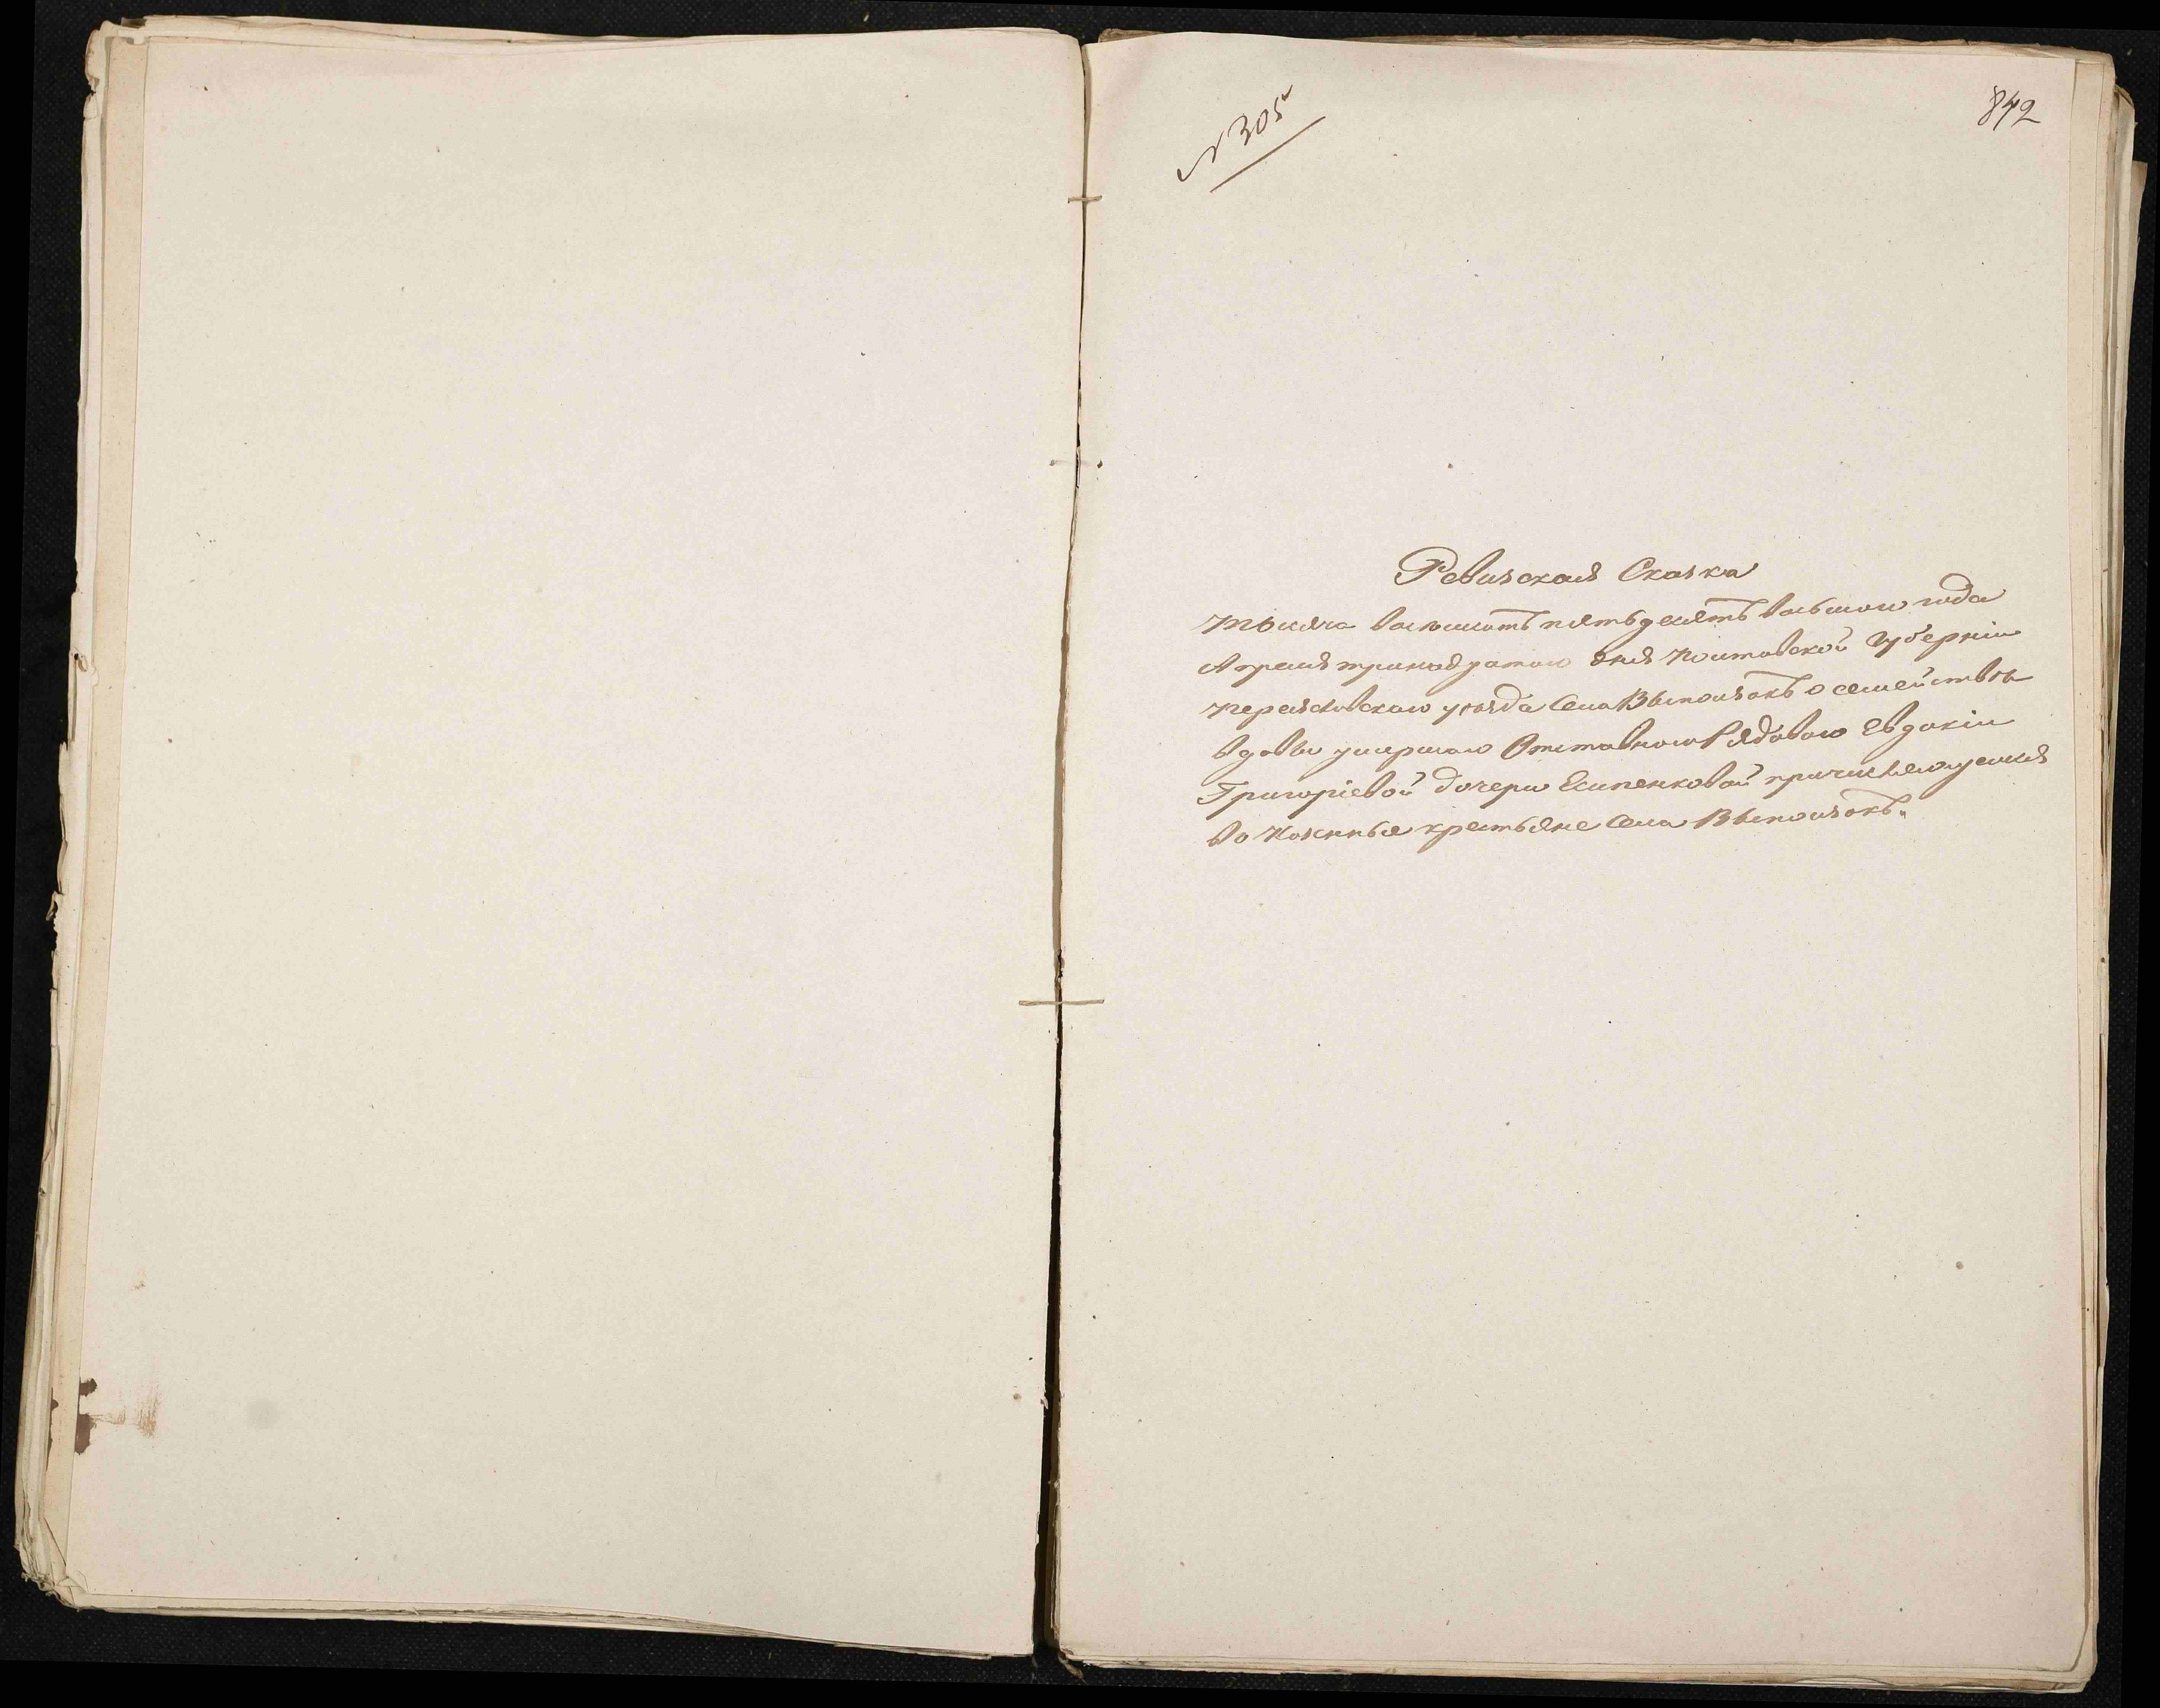 № 305
842
Ревизская Сказка
Тысяча восемсотъ пятьдесятъ восьмого года
Апреля тринадцатого дня Полтавской Губерніи
Переяславского уезда Села Выползокъ о семействѣ
вдовы умершаго Отставного Рядового Евдокіи
Григоріевой дочери Есипенковой причисляющемся
во Казенные крестьяне Села Выползокъ.